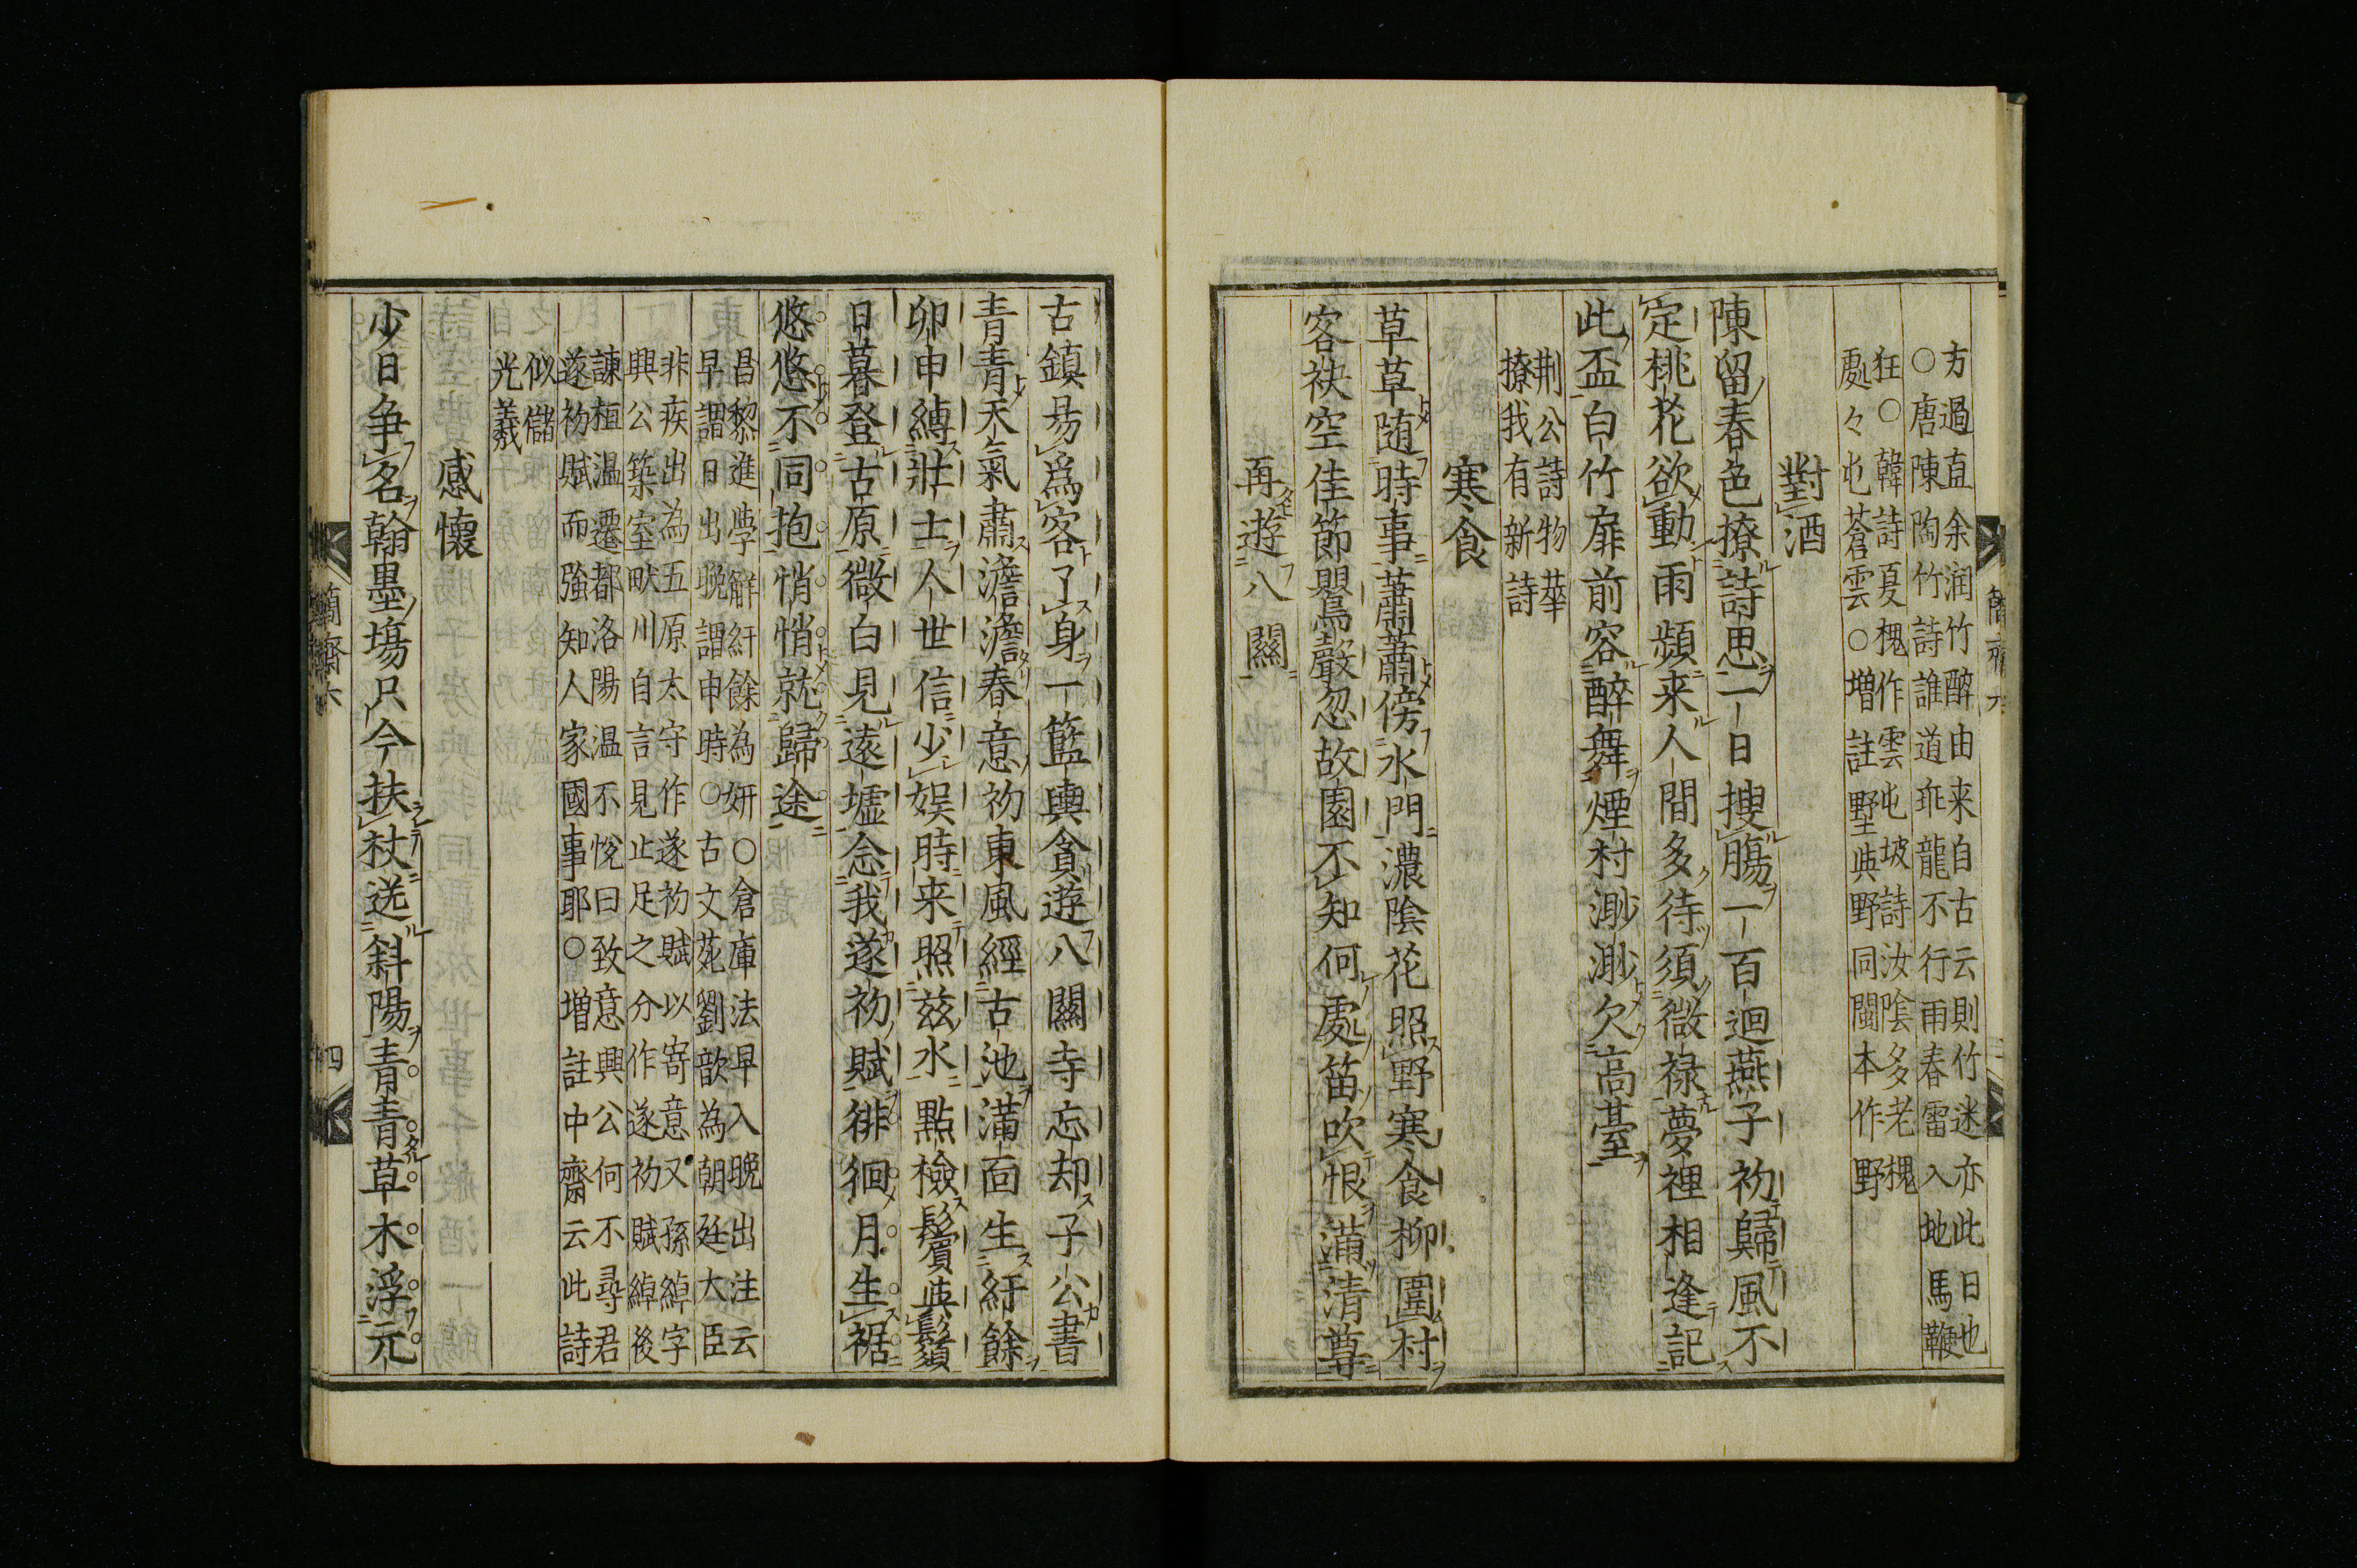 方過直余润竹醉由来自古云則竹迷亦此日也
○唐陳陶竹詩誰道乖龍不行雨春雷入地馬鞭
狂○韓詩夏槐作雲屯坡詩汝陰多老槐
處々屯蒼雲○增註墅與野同閩本作野
對酒
陳留春色撩詩思一日搜腸一百迴燕子初歸風不
定桃花欲動雨頻来人間多待須微禄夢裡相逢記
此盃白竹扉前容醉舞煙村渺渺欠高臺
荆公詩物華
撩我有新詩
寒食
草草随時事蕭蕭傍水門濃陰花照野寒食柳圍村
客袂空佳節鸎聲忽故園不知何處笛吹恨滿清尊
再遊八關
古鎮易爲客了身一籃輿貪遊八關寺忘却子公書
青青天氣肅澹澹春意初東風經古池滿面生紆餘
卯申縛壯士人世信少娱時来照兹水點檢鬢與鬚
日暮登古原微白見遠墟念我遂初賦徘徊月生裾
悠悠不同抱悄悄就歸途
昌黎進學解紆餘為妍○倉庫法早入晚出注云
早謂日出晚謂申時○古文苑劉歆為朝廷大臣
非疾出為五原太守作遂初賦以寄意又孫綽字
興公築室畎川自言見止足之分作遂初賦綽後
諫桓温遷都洛陽温不悅曰致意興公何不尋君
遂初賦而強知人家國事耶○增註中齋云此詩
似儲
光羲
感懷
少日争名翰墨場只今扶杖送斜陽青青草木浮元
簡齋六
四